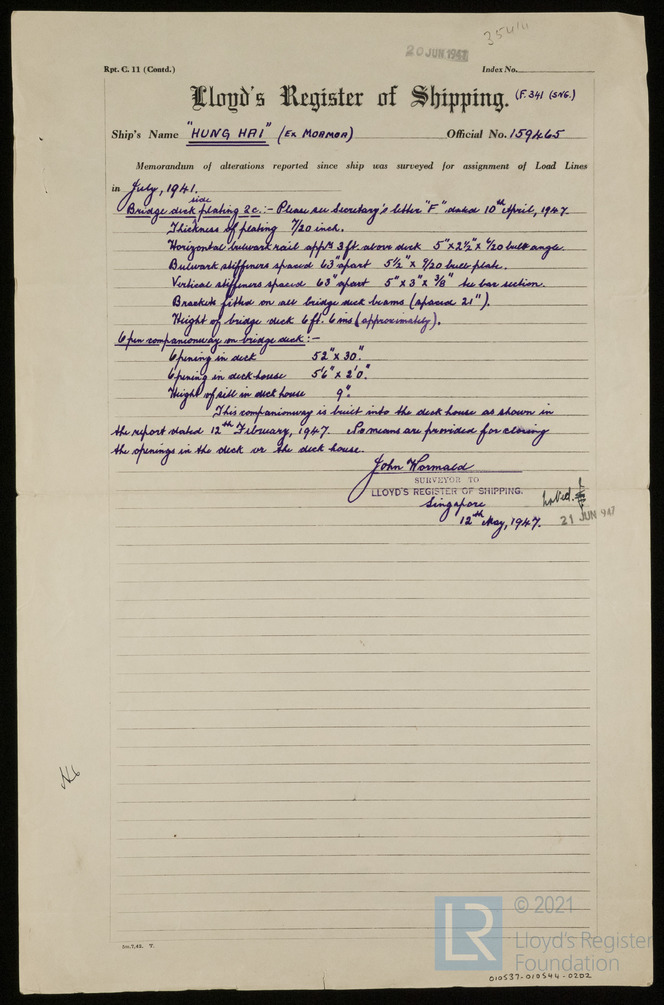 354
20 JUN 1947
Rpt. C. 11 (Contd.) Index No.
Lloyd's Register of Shipping. (F.341 (SNG.)
Ship's Name "HUNG HAI" (Ex MORMOA) Official No. 159465
Memorandum of alterations reported since ship was surveyed for assignment of Load Lines
in July, 1941.
Bridge deck side plating &c. :- Please see Secretary's letter "F" dated 10th April, 1947.
Thickness of plating 7/20 inch.
Horizontal bulwark rail appx 3 ft. above deck 5" x 2½" x 9/20 bulb angle.
Bulwark stiffeners spaced 63" apart 5½" x 9/20 bulb plate.
Vertical stiffeners spaced 63" apart 5" x 3" x 3/8" tee bar section.
Brackets fitted on all bridge deck beams (spaced 21").
Height of bridge deck 6 ft. 6 ins (approximately).
Open companionway on bridge deck :-
Opening in deck 52" x 30".
Opening in deck house 5'6" x 2'0".
Height of sill in deck house 9".
This companionway is built into the deck house as shown in
the report dated 12th February, 1947. No means are provided for closing
the openings in the deck or the deck house.
John Wormald
SURVEYOR TO
LLOYD'S REGISTER OF SHIPPING.
Singapore
12th May, 1947.
Noted.
21 JUN 947
5m.7,42. T.
LR
© 2021
Lloyd's Register
Foundation
010537-010544-0202